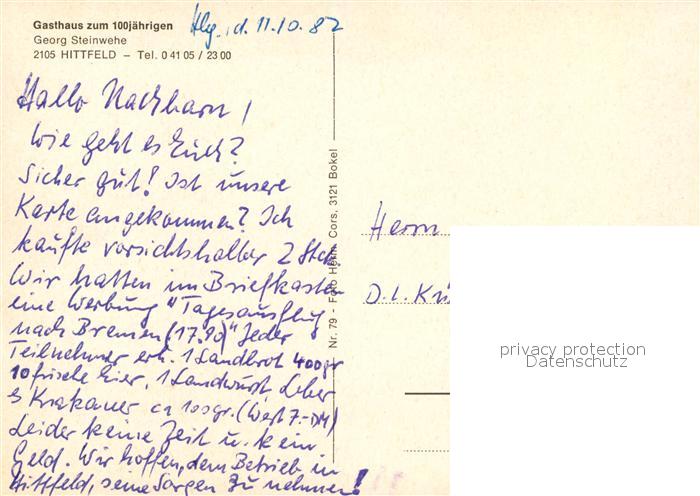 Gasthaus zum 100jährigen
Georg Steinwehe
2105 HITTFELD – Tel. 0 41 05 / 23 00
Hbg., d. 11.10.82
Hallo Nachbarn!
Wie geht es Euch?
Sicher gut! Ist unsere
Karte angekommen? Ich
kaufte vorsichtshalber 2 Stck.
Wir hatten im Briefkasten
eine Werbung "Tagesausflug
nach Bremen (17.90)" Jeder
Teilnehmer erh. 1 Landbrot 400gr
10 frische Eier, 1 Landwurst, Leber
Krakauer ca 100gr. (Wert 7.-DM)
Leider keine Zeit u. kein
Geld. Wir hoffen, dem Betrieb in
Hittfeld, seine Sorgen zu nehmen!
Nr. 79 - Foto Heinr. Cors, 3121 Bokel
Herrn
privacy protection
Datenschutz